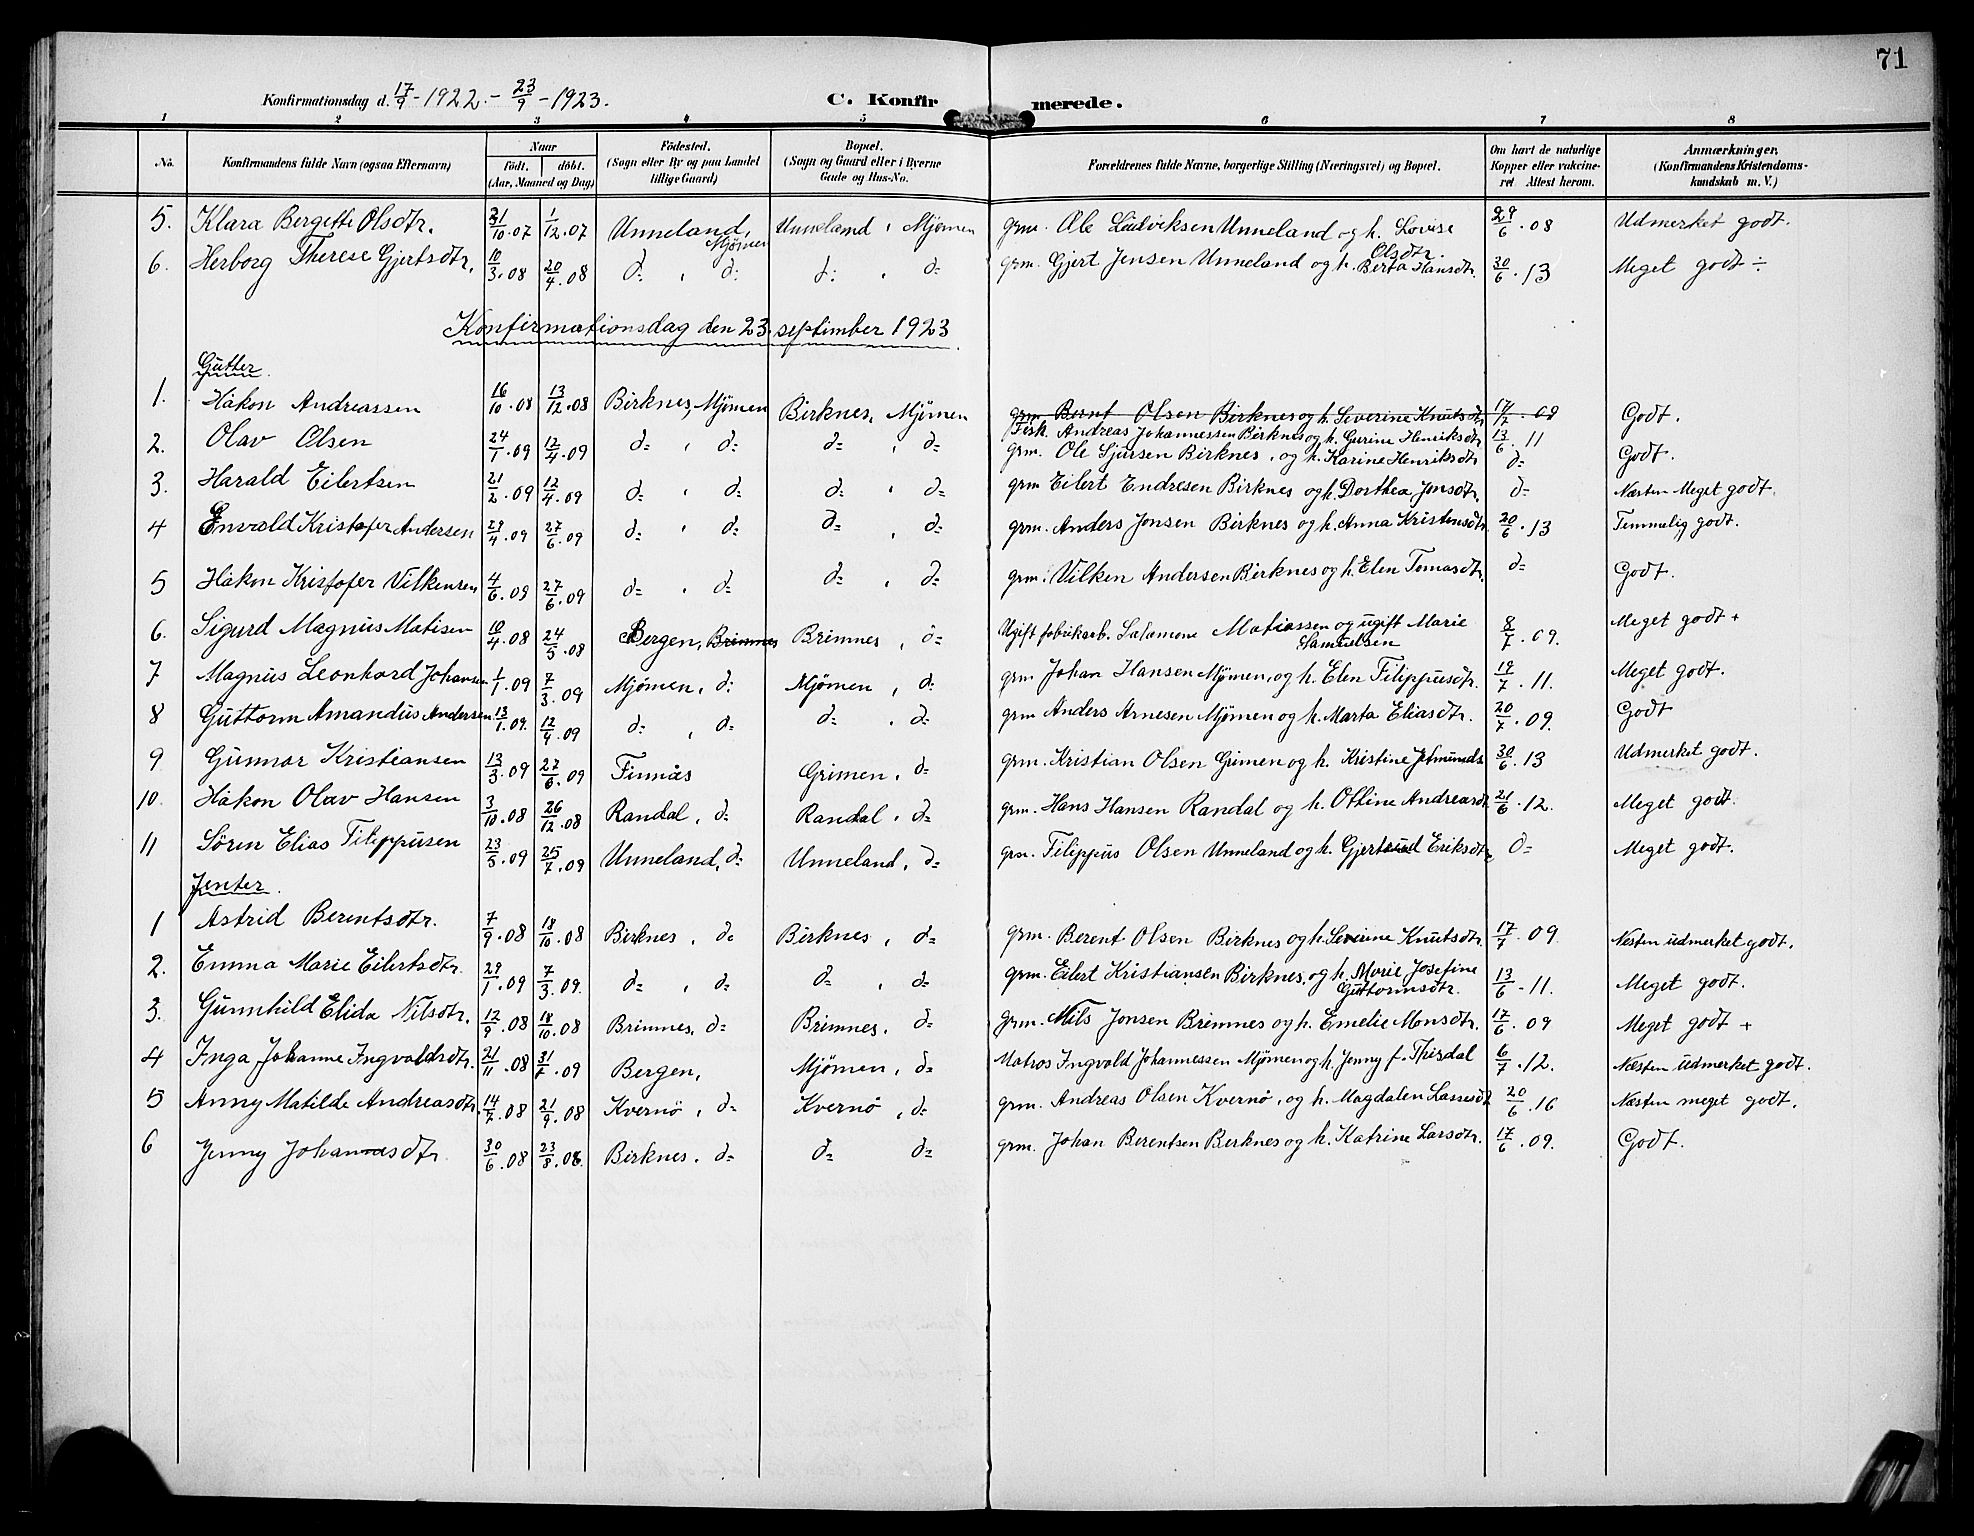 71
Konfirmationsdag d. 17/9 - 1922. - 23/9 - 1923.
C. Konfirmerede.
1 2 3 4 5 6 7 8
No. Konfirmandens fulde Navn (ogsaa Efternavn) Naar født. døbt. (Aar, Maaned og Dag) Fødested. (Sogn eller By og paa Landet tillige Gaard) Bopæl. (Sogn og Gaard eller i Byerne Gade og Hus-No. Forældrenes fulde Navne, borgerlige Stilling (Næringsvei) og Bopæl. Om havt de naturlige Kopper eller vakcineret Attest herom. Anmærkninger, (Konfirmandens Kristendomskundskab m. V.)
5. Klara Bergette Olsdtr. 21/10.07 1/12.07 Unneland, Mjømen Unneland, Mjømen grm. Ole Ludviksen Unneland og h. Lovise Olsdtr. 29/6.08 Udmerket godt.
6. Herborg Therese Gjertsdtr. 10/3.08 20/4.08 d: , d: d: , d: grm. Gjert Jensen Unneland og h. Berta Hansdtr. 30/6.13 Meget godt ÷
Konfirmationsdag den 23. september 1923.
Gutter.
1. Håkon Andreassen 16/10.08 13/12.08 Birknes, Mjømen Birknes, Mjømen grm. Bernt Olsen Birknes og h. Severine Knutsdtr. 17/7.09 Godt.
Fisk. Andreas Johannessen Birknes og h. Gurine Henriksdtr 13/6.11
2. Olav Olsen 24/1.09 12/4.09 d= , d: d= , d= grm. Ole Sjursen Birknes, og h. Karine Henriksdtr d= Godt.
3. Harald Eilertsen 21/2.09 12/4.09 d: , d: d: , d= grm Eilert Endresen Birknes og h. Dorthea Jonsdtr. d= Næsten Meget godt.
4 Envald Kristofer Andersen 29/4.09 27/6.09 d: , d: d= , d: grm. Anders Jonsen Birknes og h. Anna Kristensdtr 20/6.13 Temmelig godt.
5 Håkon Kristofer Vilkensen 4/6.09 27/6.09 d= , d= d= , d= grm. Vilken Andersen Birknes og h. Elen Tomasdtr. d= Godt.
6. Sigurd Magnus Matisen 10/4.08 24/5.08 Bergen, Brimnes Brimnes, d= Ugift fabrikarb. Salomone Matiassen og ugift Marie Samuelsen 8/7.09. Meget godt +
7 Magnus Leonhard Johansen 1/1.09 7/3.09 Mjømen, d: Mjømen, d: grm Johan Hansen Mjømen, og h. Elen Filippusdtr. 19/7.11. Meget godt.
8 Guttorm Amandus Andersen 13/1.09. 12/4.09 d: , d= d= , d= grm Anders Arnesen Mjømen og h. Marta Eliasdtr. 20/7.09. Godt
9 Gunnar Kristiansen 13/3.09 27/6.09 Finnås Grimen, d= grm. Kristian Olsen Grimen og h. Kristine Jetmunds 30/6.13 Udmerket godt.
10. Håkon Olav Hansen 3/10.08 26/12.08 Randal, d= Randal, d= grm. Hans Hansen Randal og h. Ottine Andreasdt 21/6.12. Meget godt.
11 Søren Elias Filippusen 23/5.09 25/7.09 Unneland, d= Unneland, d= grm. Filippus Olsen Unneland og h. Gjertrud Eriksdtr d= Meget godt.
Jenter.
1 Astrid Berentsdtr. 7/9.08 18/10.08 Birknes, d= Birknes, d= grm. Berent Olsen Birknes og h. Severine Knutsdtr. 17/7.09. Næsten udmerket godt.
2. Emma Marie Eilertsdtr. 29/1.09 7/3.09. d= , d= d= , d= grm. Eilert Kristiansen Birknes, og h. Marie Josefine Guttormsdtr. 13/6-11. Meget godt.
3. Gunnhild Elida Nilsdtr. 12/9.08 18/10.08 Brimnes, d= Brimnes, d= grm. Nils Jonsen Brimnes og h. Emelie Monsdtr. 17/6.09 Meget godt +
4 Inga Johanne Ingvaldsdtr. 21/11.08 31/1.09 Bergen, Mjømen, d= Matros Ingvald Johannessen Mjømen og h. Jenny f. Thirdal 6/7.12. Næsten udmerket godt.
5 Anny Matilde Andreasdtr. 14/7.08 21/9.08 Kvernø, d= Kvernø, d= grm. Andreas Olsen Kvernø, og h. Magdalen Lassesdt 20/6.16 Næsten meget godt.
6 Jenny Johannasdtr. 30/6.08 23/8.08. Birknes. d= d= d= grm. Johan Berentsen Berknes og h. Katrine Larsdtr. 17/6.09. Godt.